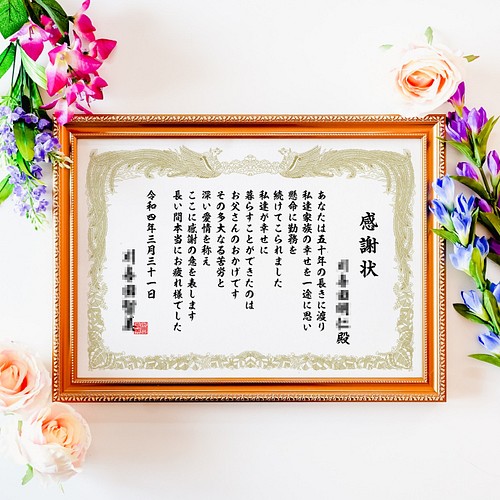 感謝状
殿
あなたは五十年の長きに渡り
私達家族の幸せを一途に思い
懸命に勤務を
続けてこられました
私達が幸せに
暮らすことができたのは
お父さんのおかげです
その多大なる苦労と
深い愛情を称え
ここに感謝の意を表します
長い間本当にお疲れ様でした
令和四年三月三十一日